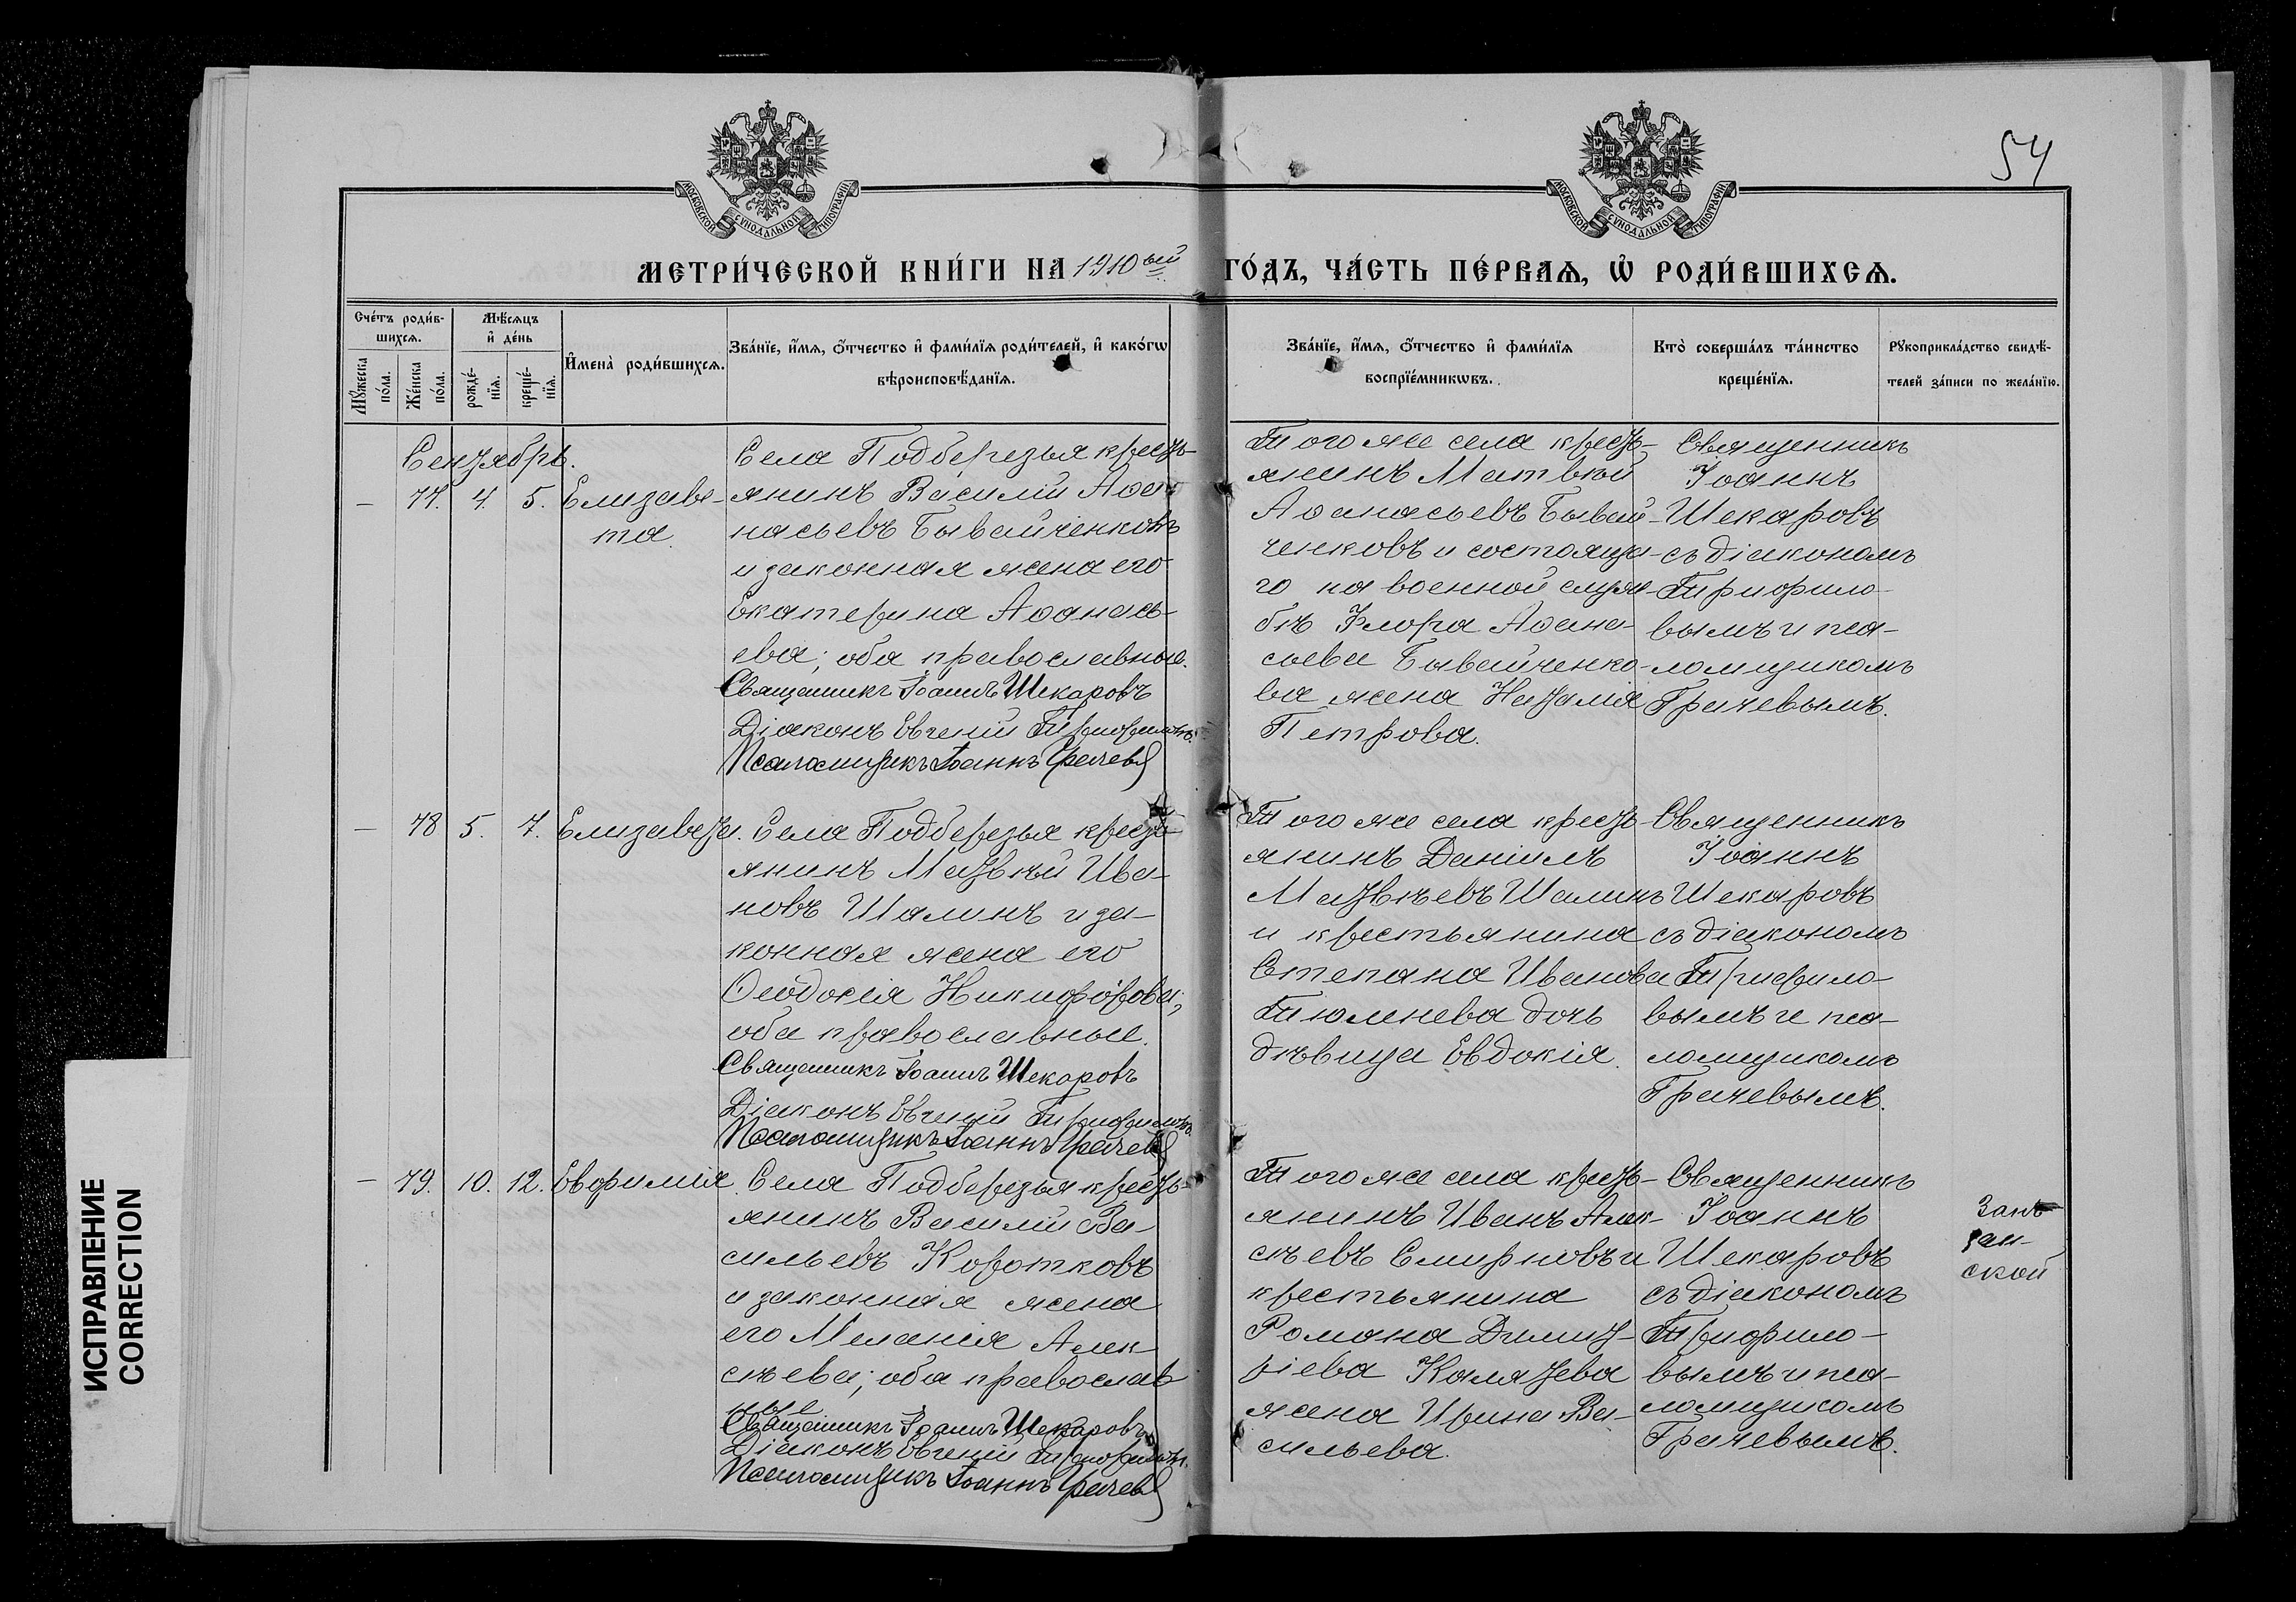 54
МОСКОВСКОЙ СѴНОДАЛЬНОЙ ТИПОГРАФІИ
МОСКОВСКОЙ СѴНОДАЛЬНОЙ ТИПОГРАФІИ
МЕТРИ́ЧЕСКОЙ КНИ́ГИ НА 1910ый ГО́ДЪ, ЧА́СТЬ ПЕ́РВАѦ, Ѡ РОДИ́ВШИХСѦ.
Сче́тъ роди́в-
шихсѧ.
Мꙋ́жеска
по́ла.
Же́нска
по́ла.
Мѣ́сѧцъ
и҆ де́нь
рожде́-
нїѧ.
креще́-
нїѧ.
И҆мена̀ роди́вшихсѧ.
Зва́нїе, и҆́мѧ, ѻ҆́тчество и҆ фами́лїѧ роди́телей, и҆ како́гѡ
вѣроисповѣ́данїѧ.
Зва́нїе, и҆́мѧ, ѻ҆́тчество и҆ фами́лїѧ
воспрїе́мникѡвъ.
Кто̀ соверша́лъ та́инство
креще́нїѧ.
Рꙋкоприкла́дство свидѣ́-
телей за́писи по жела́нїю.
Сентябрь.
— 77. 4. 5. Елизаве-
та.
Села Подберезья кресть-
янинъ Василій Аѳа-
насьевъ Бывайченковъ
и законная жена его
Екатерина Аѳанась-
ева; оба православные.
Священникъ Іоаннъ Шекаровъ
Діаконъ Евгеній Трифиловъ.
Псаломщикъ Іоаннъ Грачевъ
Того же села кресть-
янинъ Матвѣй
Аѳанасьевъ Бывай-
ченковъ и состояща-
го на военной служ-
бѣ Флора Аѳана-
сьева Бывайченко-
ва жена Наталія
Петрова.
Священникъ
Іоаннъ
Шекаровъ
съ діакономъ
Трифило-
вымъ и пса-
ломщикомъ
Грачевымъ.
— 78 5. 7. Елизавета.
Села Подберезья кресть-
янинъ Матвѣй Ива-
новъ Шалинъ и за-
конная жена его
Ѳеодосія Никифорова;
оба православные.
Священникъ Іоаннъ Шекаровъ
Діаконъ Евгеній Трифиловъ.
Псаломщикъ Іоаннъ Грачевъ
Того же села кресть-
янинъ Даніилъ
Матвѣевъ Шалинъ
и крестьянина
Степана Иванова
Тюленева дочь
дѣвица Евдокія.
Священникъ
Іоаннъ
Шекаровъ
съ діакономъ
Трифило-
вымъ и пса-
ломщикомъ
Грачевымъ.
— 79. 10. 12. Евфимія.
Села Подберезья кресть-
янинъ Василій Ва-
сильевъ Коротковъ
и законная жена
его Меланія Алек-
сѣева; оба православ
ные
Священникъ Іоаннъ Шекаровъ
Діаконъ Евгеній Трифиловъ.
Псаломщикъ Іоаннъ Грачевъ
Того же села кресть-
янинъ Иванъ Алек-
сѣевъ Смирновъ и
крестьянина
Романа Димит-
ріева Калятева
жена Ирина Ва-
сильева.
Священникъ
Іоаннъ
Шекаровъ
съ діакономъ
Трифило-
вымъ и пса-
ломщикомъ
Грачевымъ.
ской
ИСПРАВЛЕНИЕ
CORRECTION